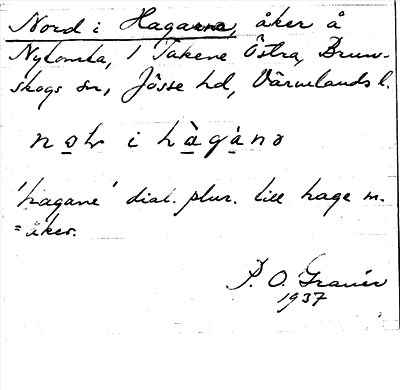 Nord i Hagarna, åker å
Nytomta, 1 Takene Östra, Brun-
skogs sn, Jösse hd, Värmlands l.
i hàgánɔ
'hagane' dial. plur. till hage m.
= åker.
P. O. Granér
1937